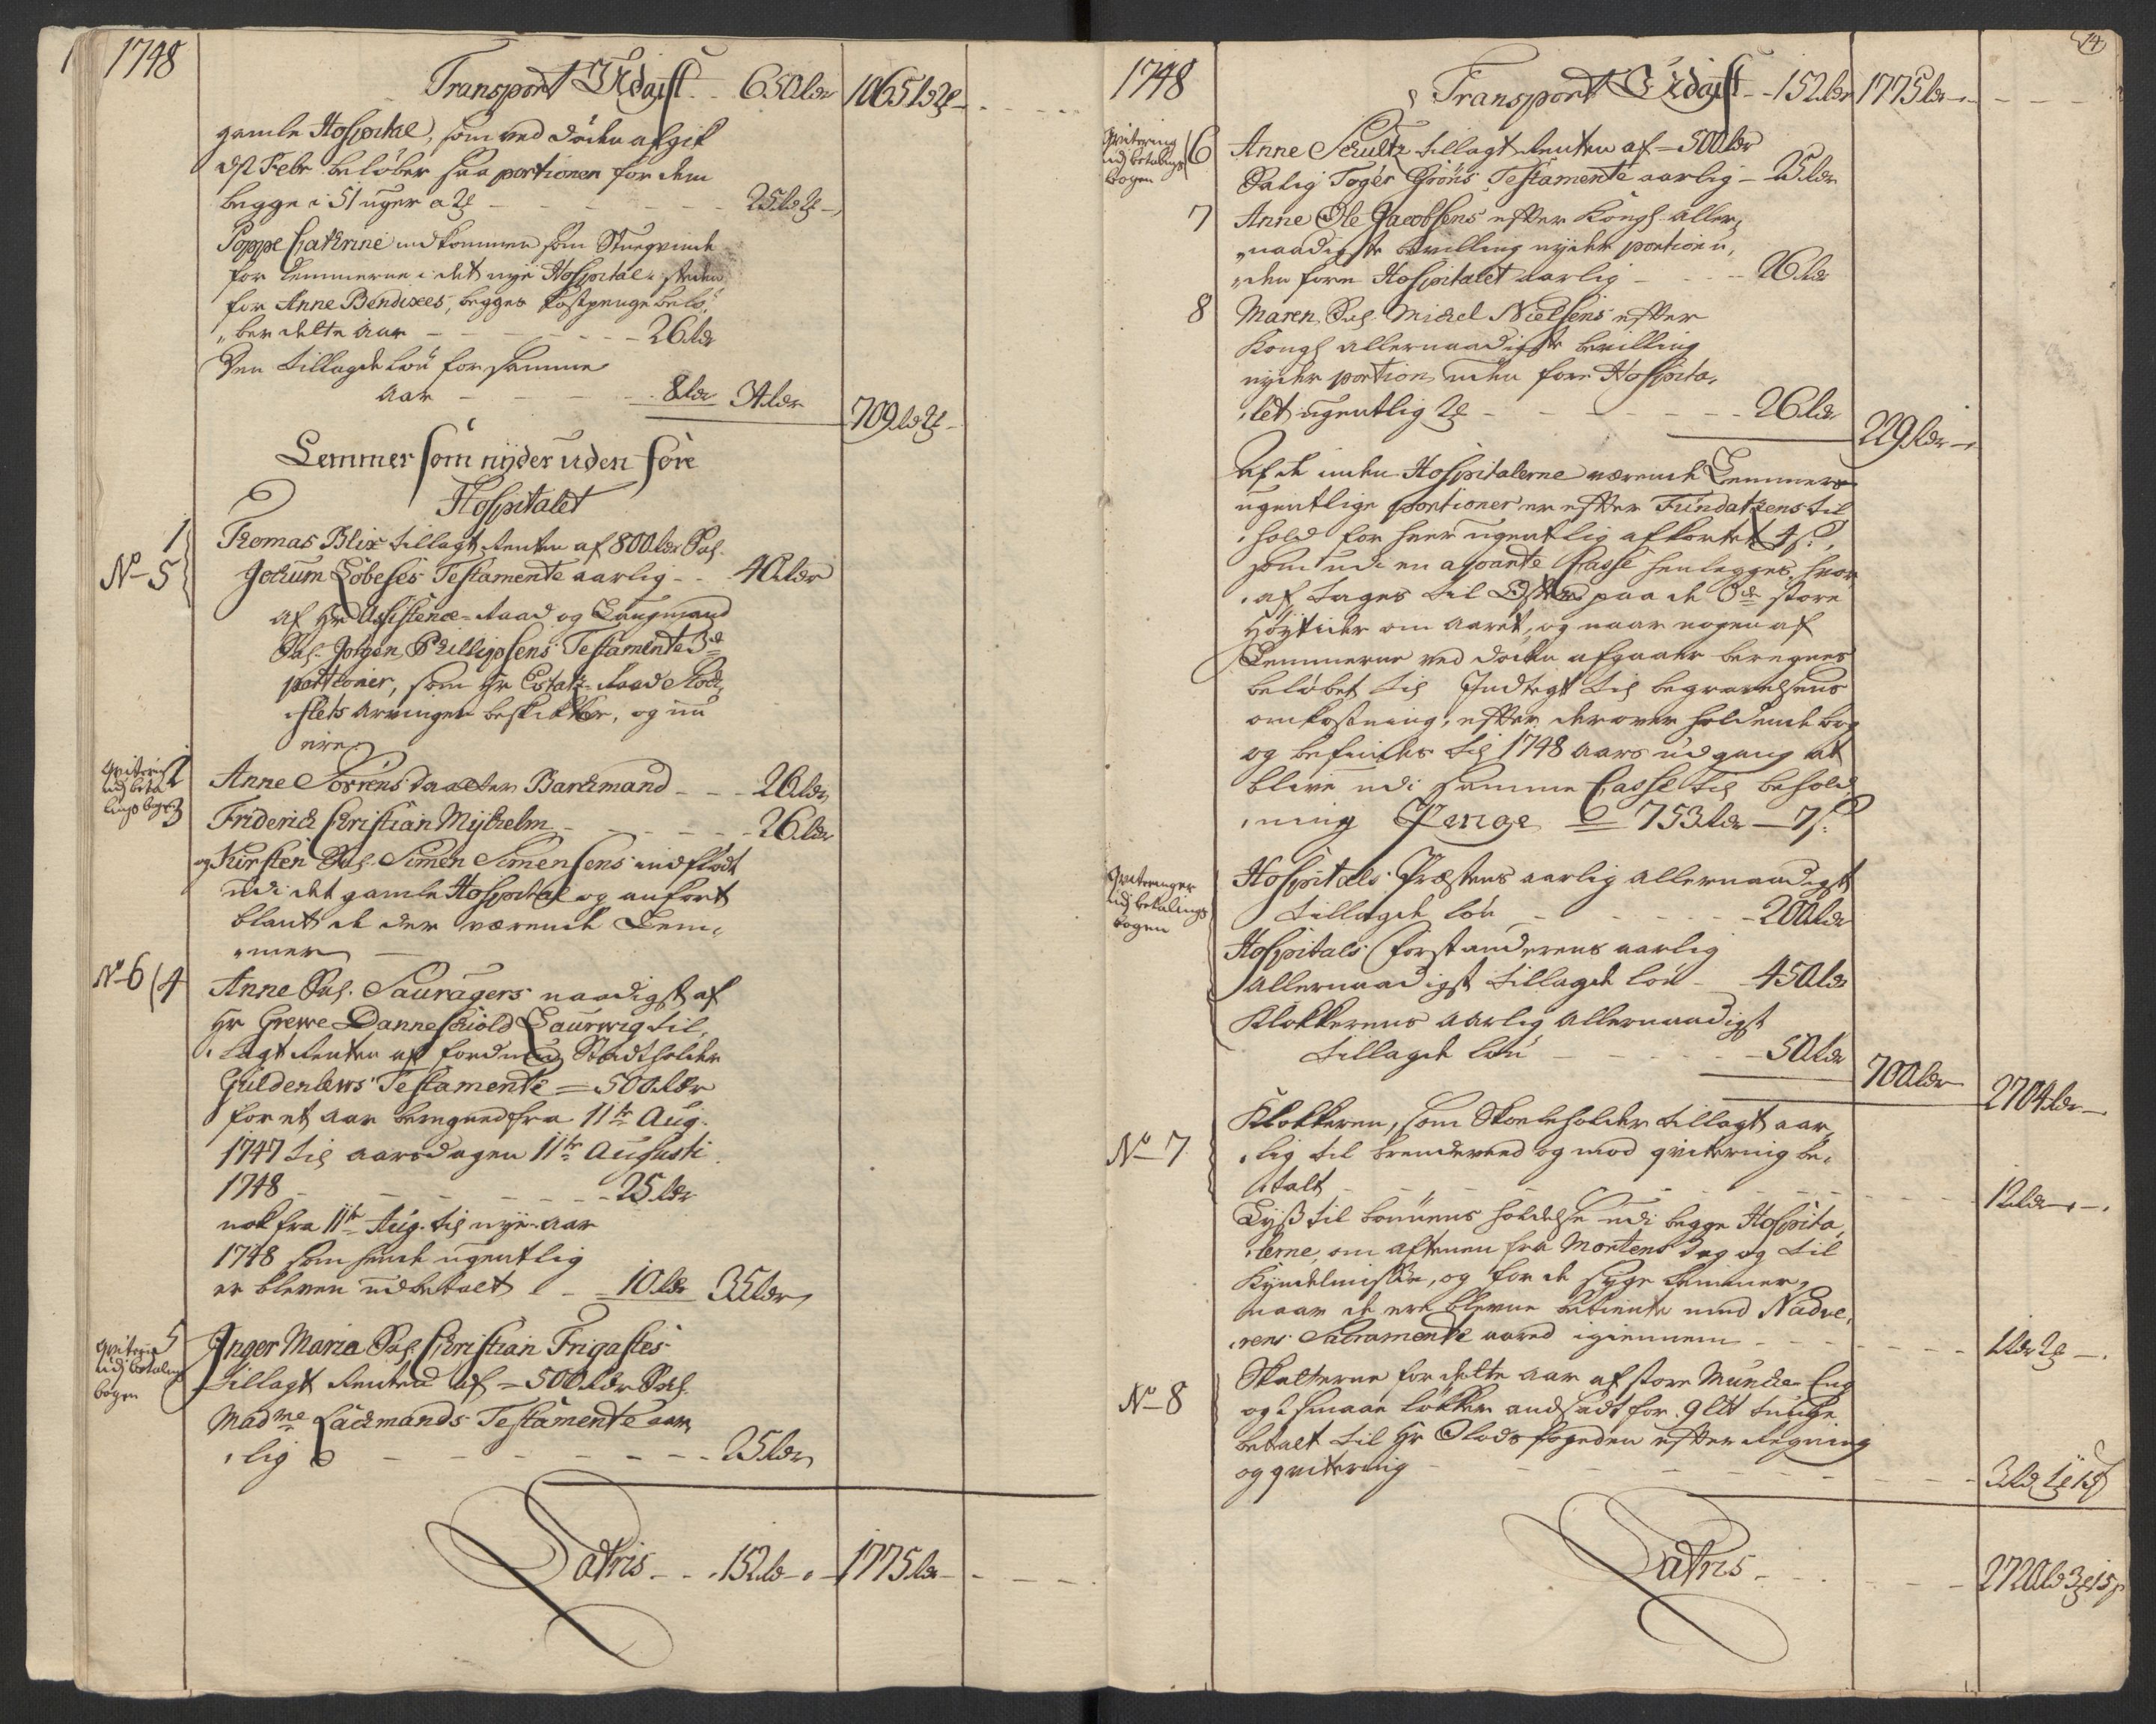 1748
Transport Udgift - - 650 rdr 1065 rd 2 ℔ -
gamle Hospital, som ved døden afgik
d. 21 Febr beløber saa portionen for dem
begge i 51 uger a 2 ℔ - - - 25 rd 2 ℔ -
Poppe Cathrine indkommen som Stueqvinde
for Lemmerne i det nye Hospital i steden
for Anne Bendixes, begges Kostpenge belø-
ber dette Aar - - - 26 rdr
Den tillagde Løn for samme
Aar - - - 8 rdr 34 rdr
709 rd 2 ℔ -
Lemmer som nyder uden fore
Hospitalet
1
No 5
Thomas Blix tillagt Renten af 800 rdr Sal.
Jochum Lobeses Testamente aarlig - - 40 rdr
af Hr Assistence-Raad og Laugmand
Sal. Jørgen Phillipsens Testamente 3de
portioner, som Hr Etatz-Raad Stoch-
flets Arvinger beskikker, og nu
ere
qviterit 2
udj beta
lings bogen 3
Anne Sørrens daatter Barchmand - - - 26 rdr
Friderich Christian Mylhelm - - - 26 rdr
og Kirsten Sal. Simen Simensens indflødt
udi det gamle Hospital og anført
blant de der værende Lem-
mer
No 6 (4
Anne Sal. Sauragers naadigst af
Hr Grewe Danneschiold Laurwig til-
lagt Renten af fordum Stadtholder
Güldenlews Testamente = 500 rdr
for et Aar beregned fra 11te Aug.
1747 til aarsdagen 11te Augusti
1748 - - - 25 rdr
nok fra 11te Aug. til nyt-aar
1748 som hende ugentlig
er bleven udbetalt - - 10 rdr 35 rdr
qviterit 5
udj betalings
bogen
Inger Maria Sal. Christian Frigastes
tillagt Renten af = 500 rdr Sal.
Madme Lachmands Testamente aar-
lig - - - 25 rdr
Latris - - - 152 rd - - 1775 rdr - - -
14
1748
Transport Udgift - - 152 rdr 1775 rdr - - -
qvitering
udj betalings
bogen (6
Anne Schultz tillagt Renten af - 500 rdr
Salig Toger Gröns Testamente aarlig - 25 rdr
7 Anne Ole Jacobsens efter Kongl. aller-
naadigste bevilling nyder portion u-
den fore Hospitalet aarlig - - - 26 rdr
8 Maren Sal. Michel Nielsens efter
Kongl allernaadigste bevilling
nyder portion uden fore Hospita-
let ugentlig 2 ℔ - - - 26 rdr
229 rdr -
Af de inden Hospitalerne værende Lemmers
ugentlige portioner er efter Fundatzens til-
hold for hver ugentlig afkortet 4 s.,
som udi en aparte Casse henlegges, hvor
af tages til Offer paa de 3de store
Høytider om Aaret, og naar nogen af
Lemmerne ved døden afgaaer beregnes
beløbet til Indtegt til begravelsens
omkostning, efter derover holdende bog
og befindes til 1748 Aars udgang at
blive udi samme Casse til behold-
ning Penge = 753 rdr - 7 s.
qviteringer
udj betalings
bogen
Hospitals Præstens aarlig allernaadigst
tillagde løn - - - 200 rdr
Hospitals Forstanderens aarlig
allernaadigst tillagde løn - - 450 rdr
Klokkerens aarlig allernaadigst
tillagde løn - - - 50 rdr
700 rdr 2704 rdr -
No 7
Klokkeren, som Skoeleholder tillagt aar-
lig til brendeveed og mod qvitering be-
talt - - - 12 rdr - -
Lyß til bønnens holdelse udi begge Hospita-
lerne, om aftenen fra Mortens dag og til
Kyndelmisße, og for de syge Lemmer,
naar de ere blevne betiente med Nadve-
rens Sacramente aared igiennem - - - 1 rdr 2 ℔ -
No 8
Skatterne for dette Aar af store Munche Eng
og 2 smaae løkker ansadt for 9 litt tunge
betalt til Hr Slodsfogeden efter Regning
og qvitering - - - 3 rd 1 ℔ 15 s
Latris - - - 2720 rd 3 ℔ 15 s